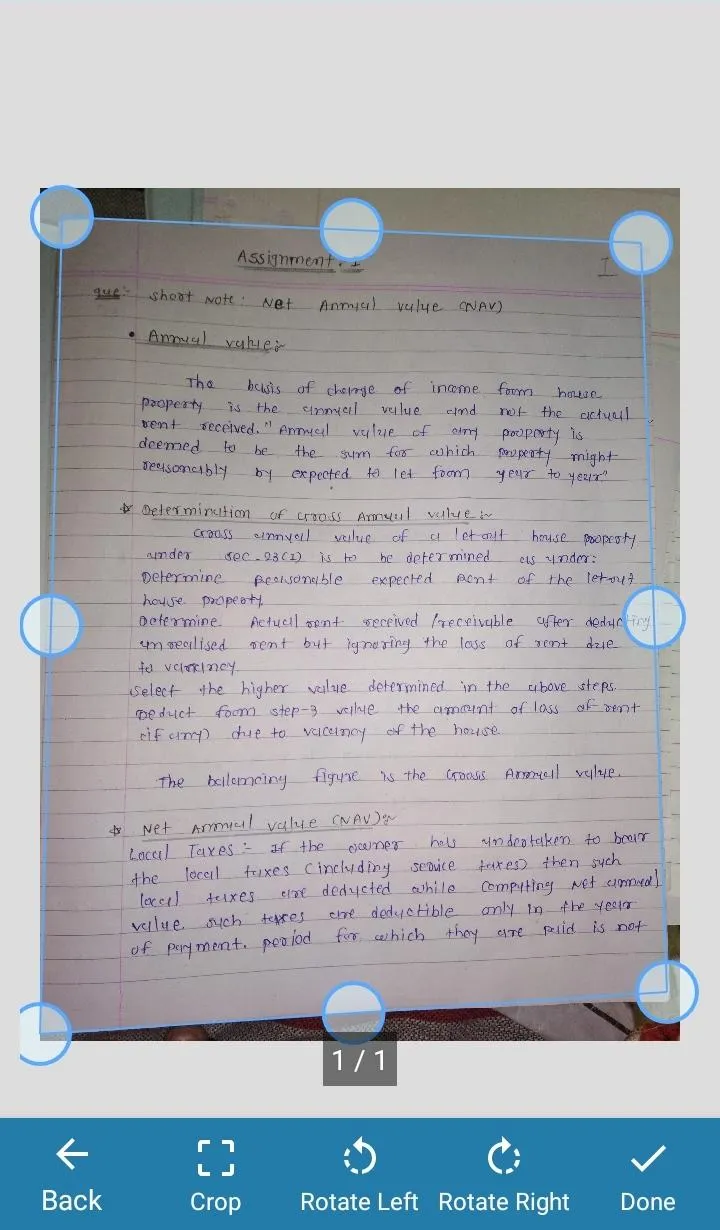 Assignment. I
I
que:- short note: Net Annual value (NAV)
• Annual value:-
The basis of charge of income from house
property is the annual value and not the actual
rent received." Annual value of any property is
deemed to be the sum for which property might
reasonably by expected to let from year to year"
Determination of Gross Annual value:-
Gross annual value of a let out house property
under sec-23(1) is to be determined as under:
Determine Reasonable expected Rent of the let out
house property.
Determine Actual rent received /receivable after deducting
unrealised rent but ignoring the loss of rent due
to vacancy.
Select the higher value determined in the above steps.
Deduct from step-3 value the amount of loss of rent
(if any) due to vacancy of the house
The balancing figure is the Gross Annual value.
Net Annual value (NAV):-
Local Taxes:- If the owner has undertaken to bear
the local taxes (including service taxes) then such
local taxes are deducted while computing Net annual
value. such taxes are deductible only in the year
of payment. period for which they are paid is not
1 / 1
Back Crop Rotate Left Rotate Right Done